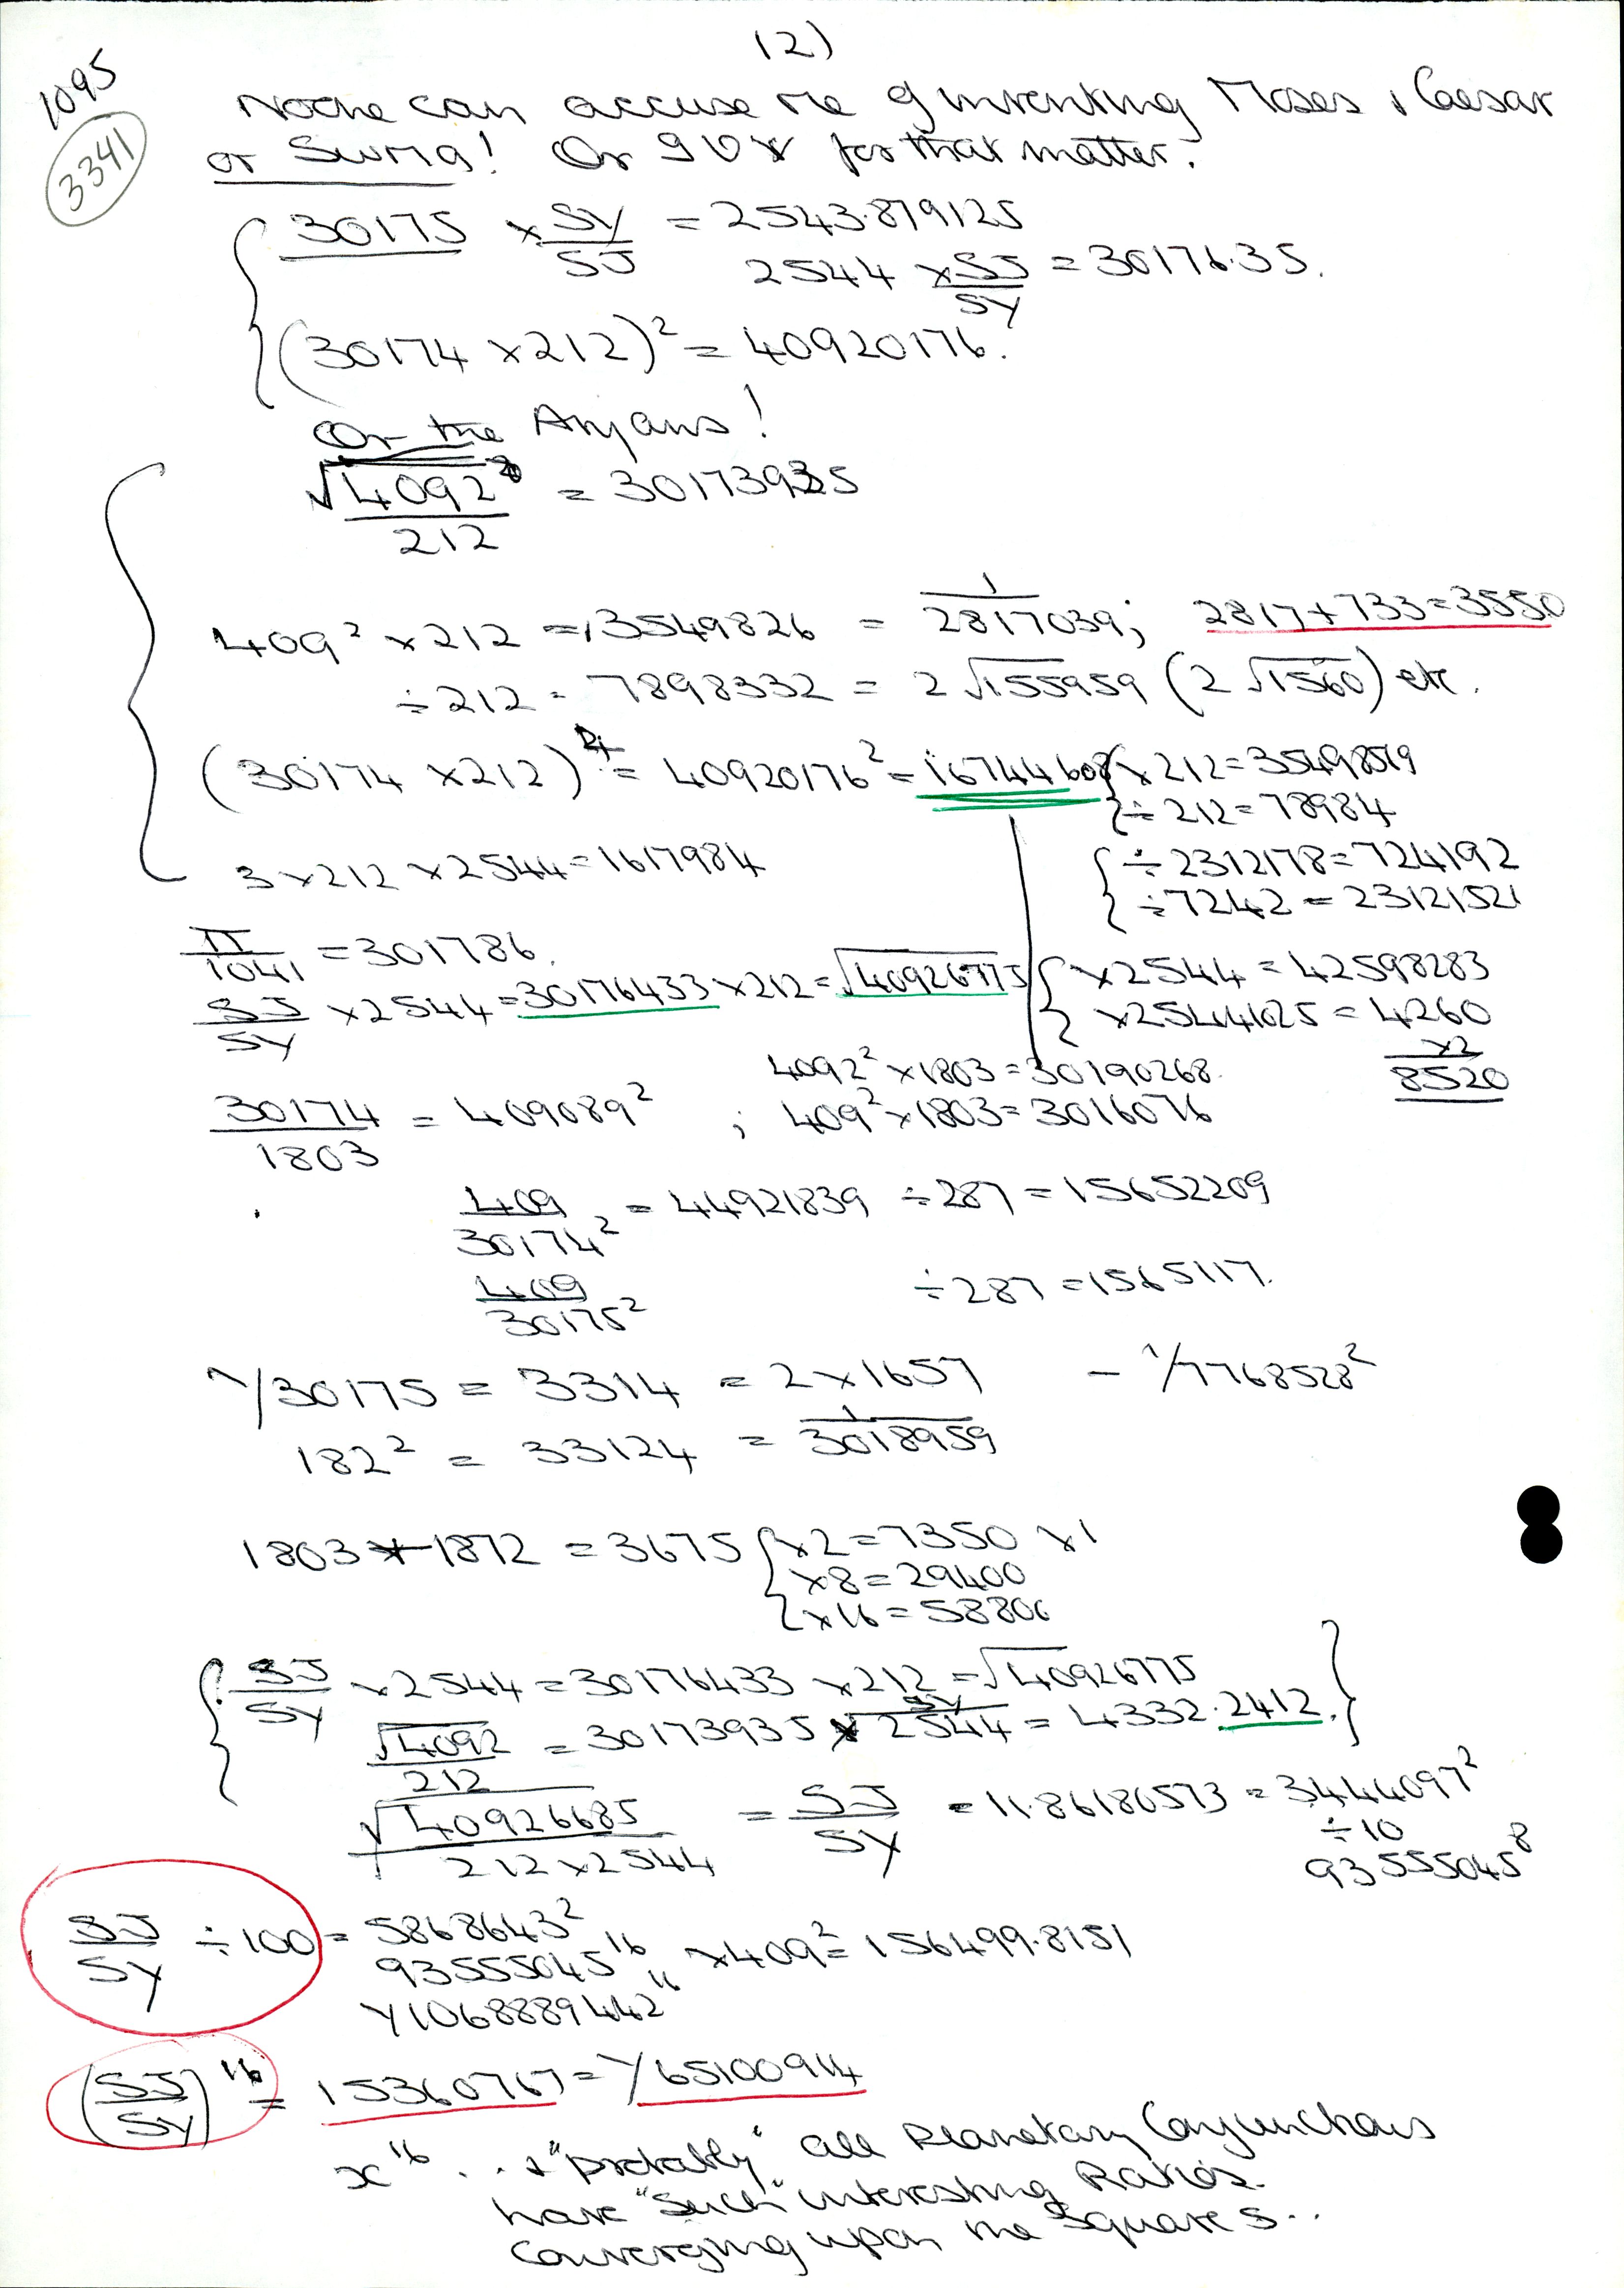 12)
1095
3341
Noone can accuse me of inventing Moses & Caesar
or Suma! Or 90x for that matter.
30175 × SY/SJ = 2543.879125
2544 × SJ/SY = 30176.35.
(30174 × 212)² = 40920176.
Or the Aryans!
√4092/212 = 30173935
409² × 212 = 3549826 = 1/2817039; 2817 + 733 = 3550
÷ 212 = 7898332 = 2√155959 (2√1560) etc.
(30174 × 212)⁴ = 40920176² = 16744608 { × 212 = 35498579
÷ 212 = 78984
3 × 212 × 2544 = 1617984
÷ 2312178 = 724192
÷ 7242 = 23121521
π/1041 = 301786.
SJ/SY × 2544 = 30176433 × 212 = √40926775
× 2544 = 42598283
× 25441025 = 4260
×2
8520
4092² × 1803 = 30190268.
30174/1803 = 409089² ; 409² × 1803 = 3016076
409/30174² = 44921839 ÷ 287 = 15652209
409/30175² ÷ 287 = 1565117.
1/30175 = 3314 = 2 × 1657 – 1/7768528²
182² = 33124 = 1/3018959
1803 + 1872 = 3675 { × 2 = 7350 × 1
× 8 = 29400
× 16 = 58800
SJ/SY × 2544 = 30176433 × 212 = √40926775
√4092/212 = 30173935 × SY/2544 = 4332.2412.
√40926685/212 × 2544 = SJ/SY = 11.86180573 = 3444097²
÷ 10
93555045⁸
SJ/SY ÷ 100 = 5868643²
93555045¹⁶ × 409² = 156499.8151
1/1068889442¹⁶
(SJ/SY)¹⁶ = 15360767 = 1/65100914
x¹⁶ . . & "probably" all Planetary Conjunctions
have "such" interesting Ratios.
Converging upon the Squares..